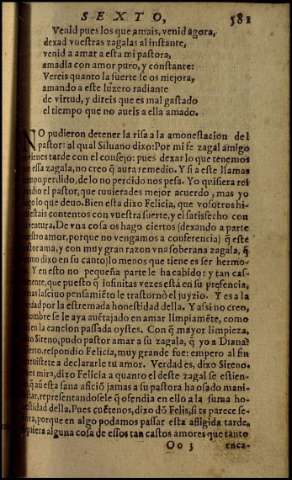 SEXTO, 581
Venid pues los que amais, venid agora,
dexad vuestras zagalas al instante,
venid a amar a esta mi pastora,
amadla con amor puro, y constante:
Vereis quanto la suerte se os mejora,
amando a este luzero radiante
de virtud, y direis que es mal gastado
el tiempo que no aueis a ella amado.
NO pudieron detener la risa a la amonestacion del
pastor: al qual Siluano dixo: Por mi fe zagal amigo
tarde con el consejo: pues dexar lo que tenemos
essa zagala, no creo q̃ aura remedio. Y si a este llamas
perdido, de lo perdido nos pesa. Yo quisiera
el pastor, que tuuierades mejor acuerdo, mas yo
lo que deuo. Bien esta dixo Felicia, que vosotros
contentos con vuestra suerte, y el satisfecho con
De vna cosa os hago ciertos (dexando a parte
amor, porque no vengamos a conferencia) q̃ este
y con muy gran razon vna soberana zagala, q̃
dixo en su canto, lo menos que tiene es ser
Y en esto no pequeña parte le ha cabido: y tan
que puesto q̃ infinitas vezes està en su presencia,
ni pensamiẽto le trastornò el juyzio. Y es a la
por la estremada honestidad della. Y assi no creo,
se le aya auetajado en amar limpiamẽte, como
en la cancion passada oystes. Con q̃ mayor limpieza,
Sireno, pudo pastor amar a su zagala, q̃ yo a Diana?
respondio Felicia, muy grande fue: empero al fin
a declararle tu amor. Verdad es, dixo Sireno.
mira, dixo Felicia a quanto el deste zagal se
esta sana aficiõ jamas a su pastora ha osado
representandosele q̃ ofendia en ello a la suma
della. Pues cõtenos, dixo dõ Felis, si te parece
porque en algo podamos passar esta afligida tarde,
alguna cosa de essos tan castos amores que tanto
Oo 3 enca-